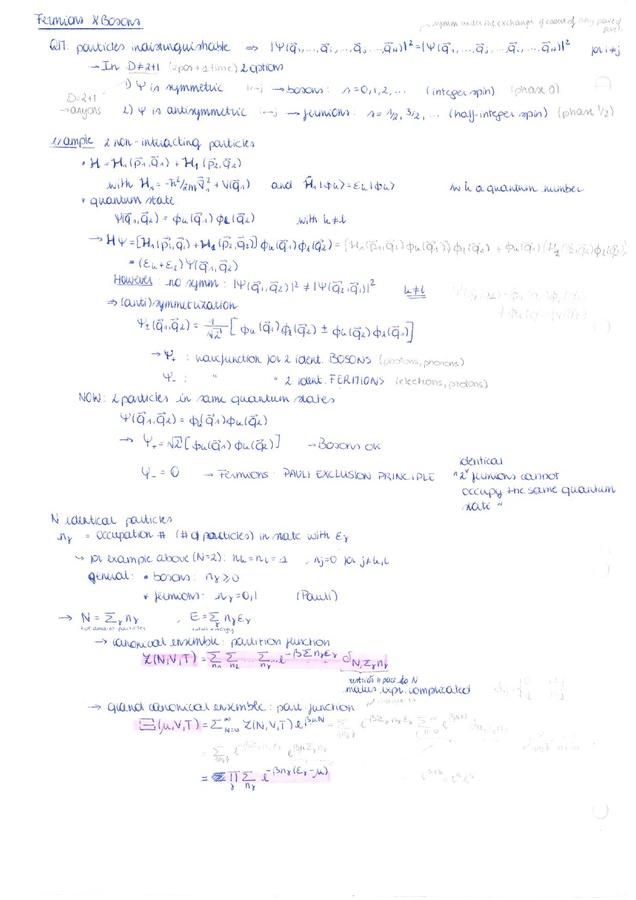 Fermions & Bosons
symm under the exchange of coord of any pair of part.
QM: particles indistinguishable ⇒ |Ψ(q⃗₁,...,q⃗ᵢ,...,q⃗ⱼ,...,q⃗ₙ)|² = |Ψ(q⃗₁,...,q⃗ⱼ,...,q⃗ᵢ,...,q⃗ₙ)|² for i≠j
→ In D≠2+1 (2pos+1time) 2 options
1) Ψ is symmetric i↔j → bosons: s=0,1,2,... (integer spin) (phase 0)
D=2+1 → anyons
2) Ψ is antisymmetric i↔j → fermions: s=1/2, 3/2, ... (half-integer spin) (phase 1/2)
example 2 non-interacting particles
• H = H₁(p⃗₁,q⃗₁) + H₂(p⃗₂,q⃗₂)
with H₁ = -ħ²/2m ∇⃗₁² + V(q⃗₁) and Ĥ₁|ϕₖ⟩ = εₖ|ϕₖ⟩ with k a quantum number
• quantum state
Ψ(q⃗₁,q⃗₂) = ϕₖ(q⃗₁) ϕₗ(q⃗₂) with k≠l
→ HΨ = [H₁(p⃗₁,q⃗₁) + H₂(p⃗₂,q⃗₂)] ϕₖ(q⃗₁) ϕₗ(q⃗₂) = (H₁(p⃗₁,q⃗₁) ϕₖ(q⃗₁)) ϕₗ(q⃗₂) + ϕₖ(q⃗₁) (H₂(p⃗₂,q⃗₂) ϕₗ(q⃗₂))
= (εₖ+εₗ) Ψ(q⃗₁,q⃗₂)
However: no symm: |Ψ(q⃗₁,q⃗₂)|² ≠ |Ψ(q⃗₂,q⃗₁)|² k≠l
⇒ (anti)symmetrization
Ψ±(q⃗₁,q⃗₂) = 1/√2 [ϕₖ(q⃗₁) ϕₗ(q⃗₂) ± ϕₖ(q⃗₂) ϕₗ(q⃗₁)]
→ Ψ₊ : wavefunction for 2 ident. BOSONS (photons, phonons)
Ψ₋ : " " 2 ident. FERMIONS (electrons, protons)
NOW: 2 particles in same quantum states
Ψ(q⃗₁,q⃗₂) = ϕₖ(q⃗₁) ϕₖ(q⃗₂)
→ Ψ₊ = √2 [ϕₖ(q⃗₁) ϕₖ(q⃗₂)] → Bosons ok
Ψ₋ = 0 → Fermions: PAULI EXCLUSION PRINCIPLE
identical
"2 fermions cannot
occupy the same quantum
state"
N identical particles
nᵧ = occupation # (# of particles) in state with εᵧ
↳ for example above (N=2): nₖ=nₗ=1, nⱼ=0 for j≠k,l
general: • bosons: nᵧ ≥ 0
• fermions: nᵧ=0,1 (Pauli)
→ N = Σᵧ nᵧ , E = Σᵧ nᵧ εᵧ
→ canonical ensemble: partition function
Z(N,V,T) = Σₙ₁ Σₙ₂ ... Σₙᵧ ... e^(-βΣnᵧεᵧ) δ_{N,Σᵧnᵧ}
makes expr. complicated
→ grand canonical ensemble: part. function
Ξ(μ,V,T) = Σ_{N=0}^∞ Z(N,V,T) e^{βμN}
= Πᵧ Σₙᵧ e^{-βnᵧ(εᵧ-μ)}